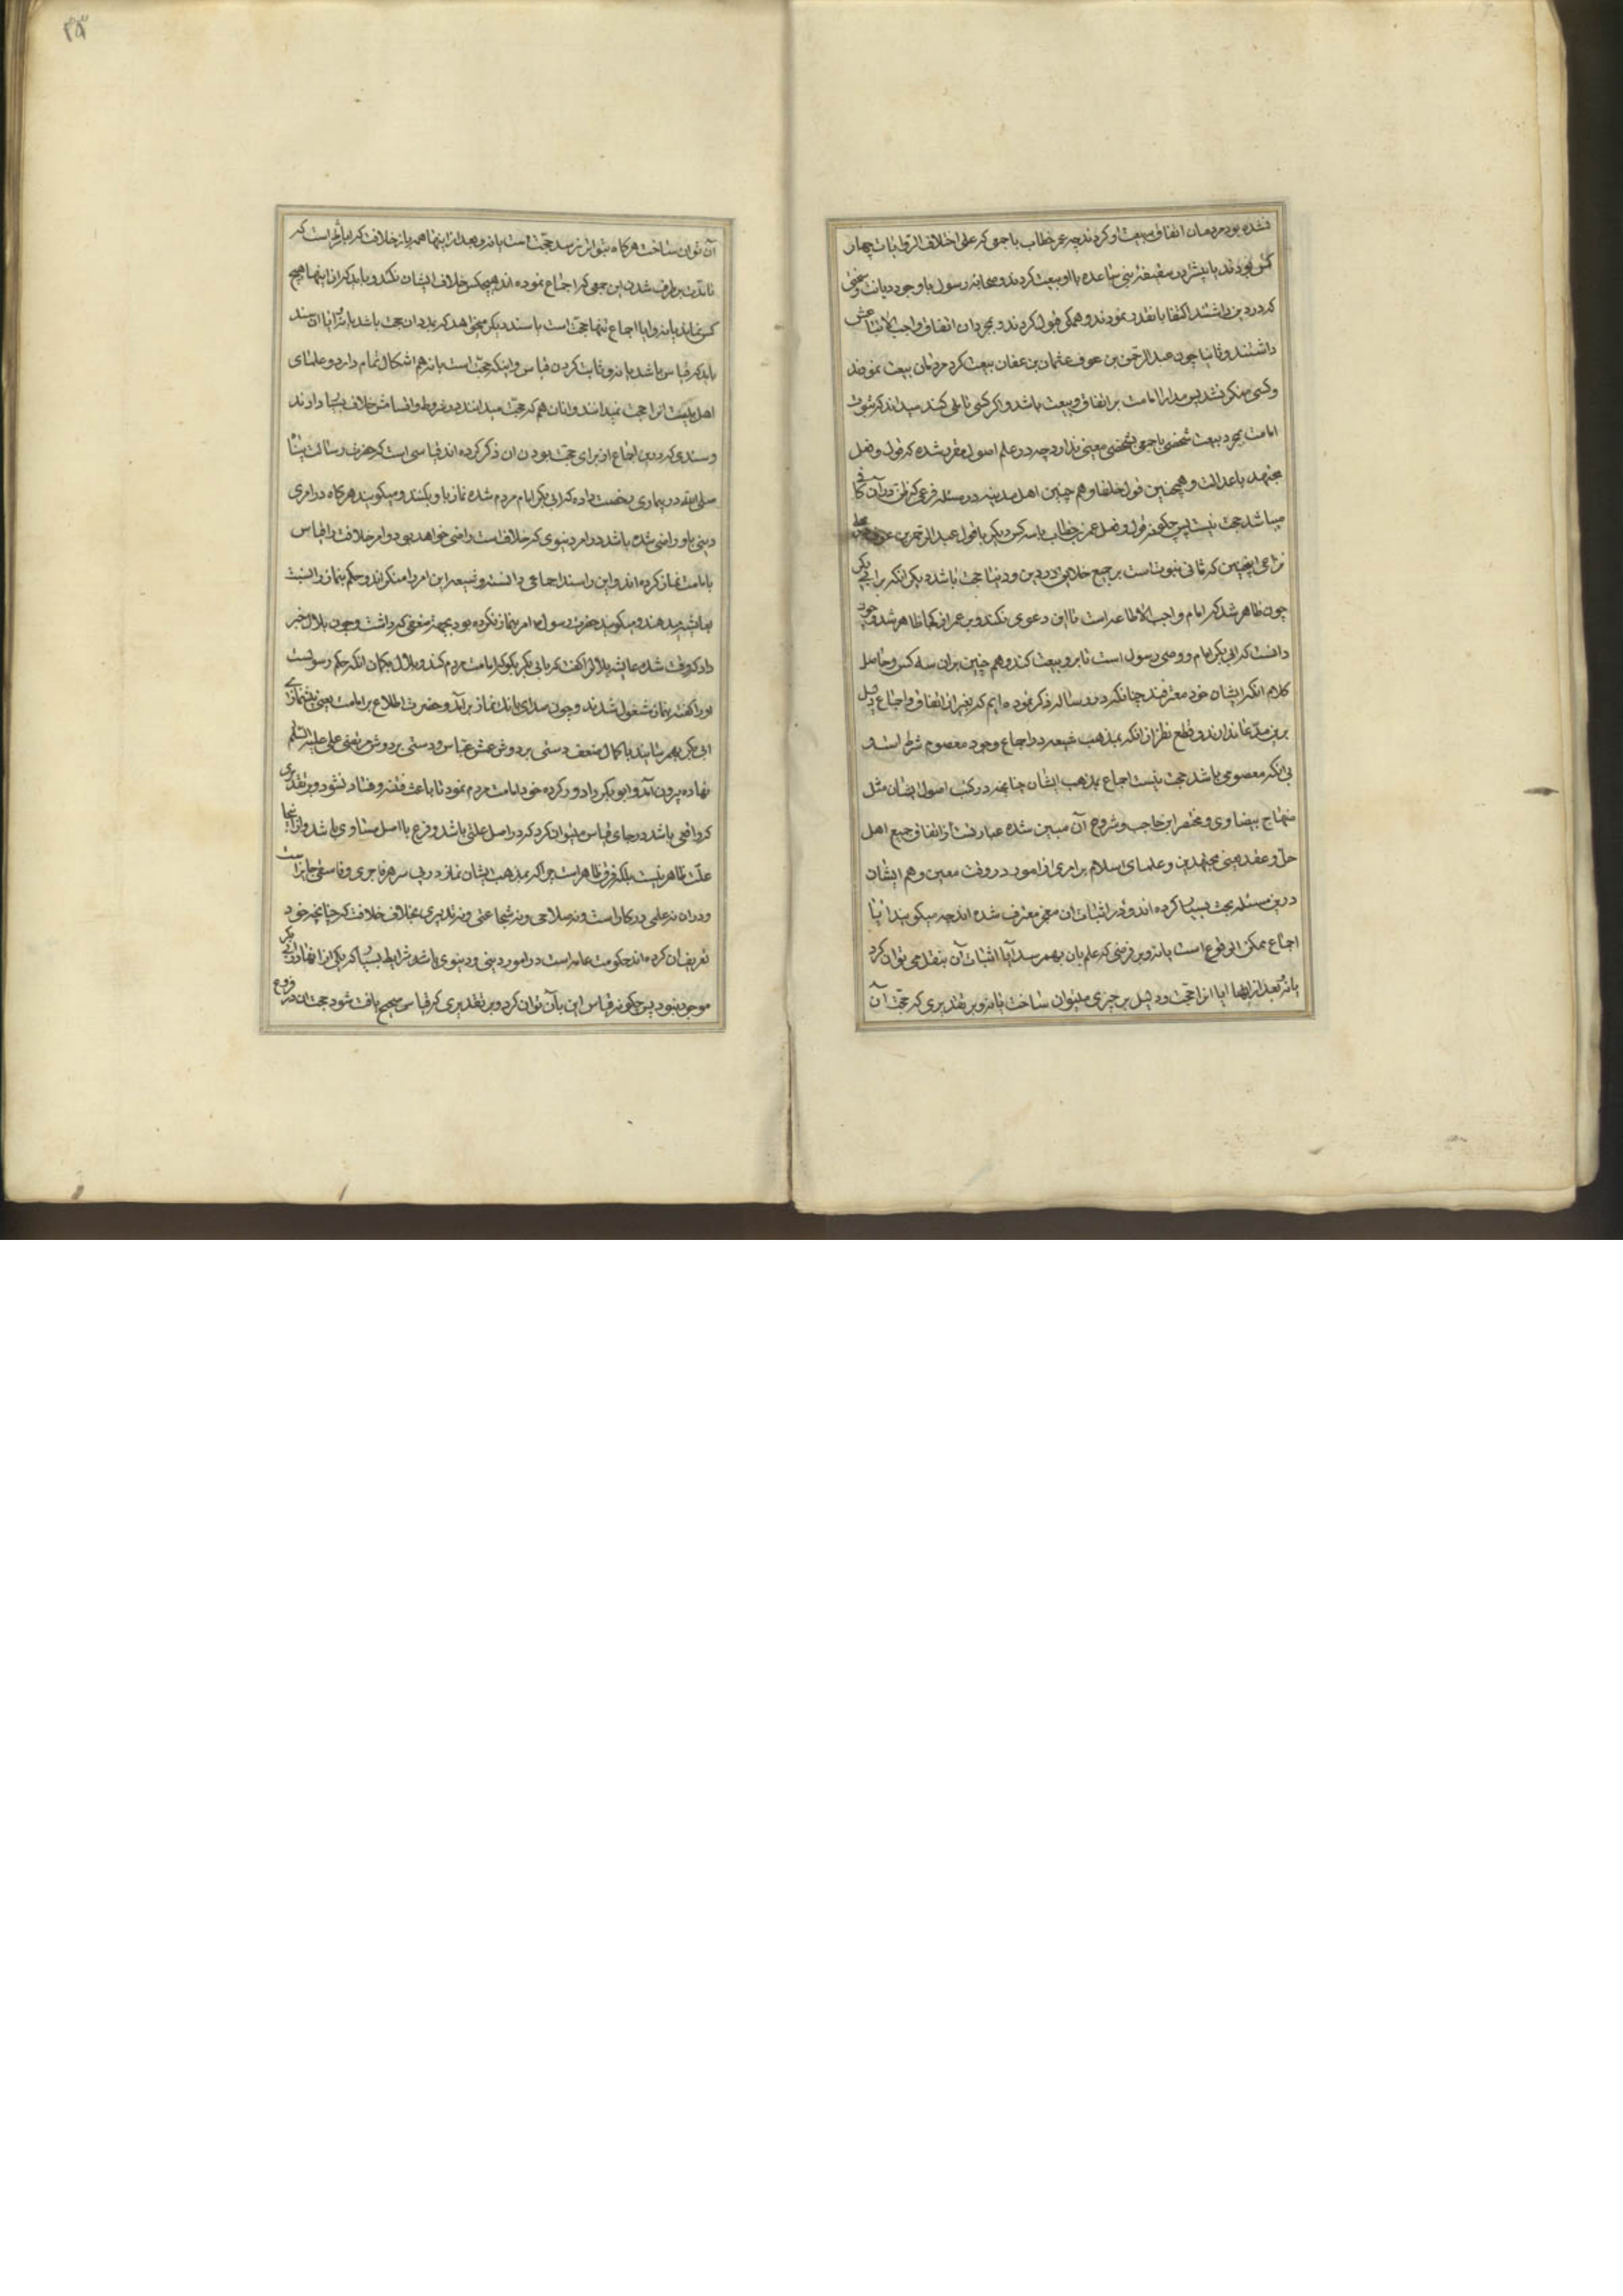 نشده بود مردمان اتفاق بر بیعت او کردند چه عمر خطاب با جمعی که علی اختلاف الروایات چهار
کس بودند یا بیشتر در سقیفه بنی ساعده با او بیعت کردند و صحابه رسول با وجود دیانت و سختی
که در دین داشتند اکتفا بانقدر نمودند و همگی قبول کردند و بمجرد آن اتفاق واجب الاتباعش
داشتند و ثانیا چون عبد الرحمن بن عوف عثمان بن عفان بیعت کرد مردمان بیعت نمودند
و کسی منکر نشد پس مدار امامت بر اتفاق و بیعت باشد و اگر کسی تاملی کند میداند که ثبوت
امامت بمجرد بیعت شخصی یا جمعی بشخصی معینی ندارد چه در علم اصول مقرر شده که قول و فعل
مجتهد با عدالت و همچنین قول خلفا و هم چنین اهل مدینه در مسئله فرعی که ظن در آن کافی
میباشد حجت نیست پس چگونه قول و فعل عمر بن خطاب با سه کس دیگر یا قول عبد الرحمن بن عوف
که ثانی نبوت است بر جمیع خلایق در دین و دنیا حجت باشد دیگر آنکه برابی بکر
چون ظاهر شد که امام واجب الاطاعه است تا این دعوی نکند و بر عمر از کجا ظاهر شد و چون
دانست که ابی بکر امام و وصی رسول است تا برو بیعت کند و هم چنین بران سه کس و حاصل
کلام آنکه ایشان خود معترفند چنانکه در رساله ذکر نموده ایم که بغیر از اتفاق و اجماع دلیل
برین مدعا ندارند و قطع نظر از آنکه بمذهب شیعه در اجماع وجود معصوم شرط است و
بی آنکه معصومی باشد حجت نیست اجماع بمذهب ایشان چنانچه در کتب اصول ایشان مثل
منهاج بیضاوی و مختصر ابن حاجب و شروح آن مبین شده عبارتست از اتفاق جمیع اهل
حل و عقد یعنی مجتهدین و علمای اسلام بر امری از امور در وقت معین و هم ایشان
درین مسئله بحث بسیار کرده اند و در اثبات ان بعجز معترف شده اند چه میگویند آیا
اجماع ممکن الوقوع است یا نه و بر فرضی که علم بان بهم رسد آیا اثبات آن بنقل می توان کرد
یا نه و بعد از اینها آیا انرا حجت و دلیل بر چیزی میتوان ساخت یا نه و بر تقدیری که حجت آن
آن توان ساخت هرگاه بتواتر نرسد حجت است یا نه و بعد از اینها همه باز خلاف کرده اند است که
تا مدت برطرف شدن این جمعی که اجماع نموده اند هیچکس خلاف ایشان نکند و باید که از اینها هیچ
کس نماند یا نه و ایا اجماع تنها حجت است یا سند دیگر میخواهد که بدان حجت باشد یا نه ایا ان سند
باید که قیاس باشد یا نه و ثابت کردن قیاس و اینکه حجت است یا نه هم اشکال تمام دارد و علمای
اهل بیت انرا حجت نمیدانند و انان هم که حجت میدانند در شروط و اقسامش خلاف بسیار دارند
و سندی که درین اجماع از برای حجت بودن ان ذکر کرده اند قیاسی است که حضرت رسالت پناه
صلی الله در بیماری رخصت داده که ابی بکر امام مردم شده نماز با او بکنند و میگویند هرگاه در امری
دینی باو راضی شده باشد در امر دنیوی که خلافتست راضی خواهد بود و امر خلافت را قیاس
بامامت نماز کرده اند و این را سند اجماعی دانسته و شیعه این امر را منکراند و حکم نماز را نسبت
بعایشه میدهند و میگویند حضرت رسول امر بنماز نکرده بود بجهة ضعفی که داشت و چون بلال خبر
داد که وقت شده عایشه بلال را گفت که بابی بکر بگو که امامت مردم کند و بلال بگمان آنکه حکم رسولست
او را گفته بنماز مشغول شدند و چون صدای بانک نماز برآمد و حضرت اطلاع بر امامت یعنی پیشنمازی
ابی بکر بهم رسانید با کمال ضعف دستی بر دوش عمش عباس و دستی بر دوش مرتضی علی علیه السلم
نهاده بیرون آمد و ابو بکر را دور کرده خود امامت مردم نمود تا باعث فتنه و فساد نشود و بر تقدیری
که واقعی باشد در جای قیاس میتوان کرد که در اصل علتی باشد و فرع با اصل مساوی باشد و اینجا
علت ظاهر نیست بلکه فرق ظاهر است چرا که بمذهب ایشان نماز در پس سر هر فاجری و فاسقی جایز است
و در ان نه علمی در کار است و نه صلاحی و نه شجاعتی و نه تدبیری بخلاف خلافت که چنانچه خود
تعریف ان کرده اند حکومت عامه است در امور دینی و دنیوی باشد و شرایط بسیار که یکی از انها در ابی بکر
موجود نبود پس چگونه قیاس این بآن توان کرد و بر تقدیری که قیاس صحیح یافت شود حجت ان در فروع